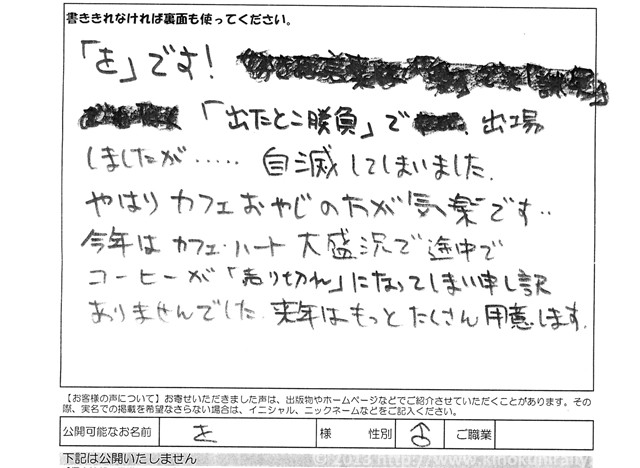 書ききれなければ裏面も使ってください。
「を」です！
「出たとこ勝負」で 出場
しましたが‥‥‥ 自滅してしまいました.
やはりカフェおやじの方が気楽です‥
今年はカフェ・ハート大盛況で途中で
コーヒーが「売り切れ」になってしまい申し訳
ありませんでした.来年はもっとたくさん用意します.
【お客様の声について】お寄せいただきました声は、出版物やホームページなどでご紹介させていただくことがあります。その
際、実名での掲載を希望なさらない場合は、イニシャル、ニックネームなどをご記入ください。
公開可能なお名前 を 様 性別 ご職業
下記は公開いたしません